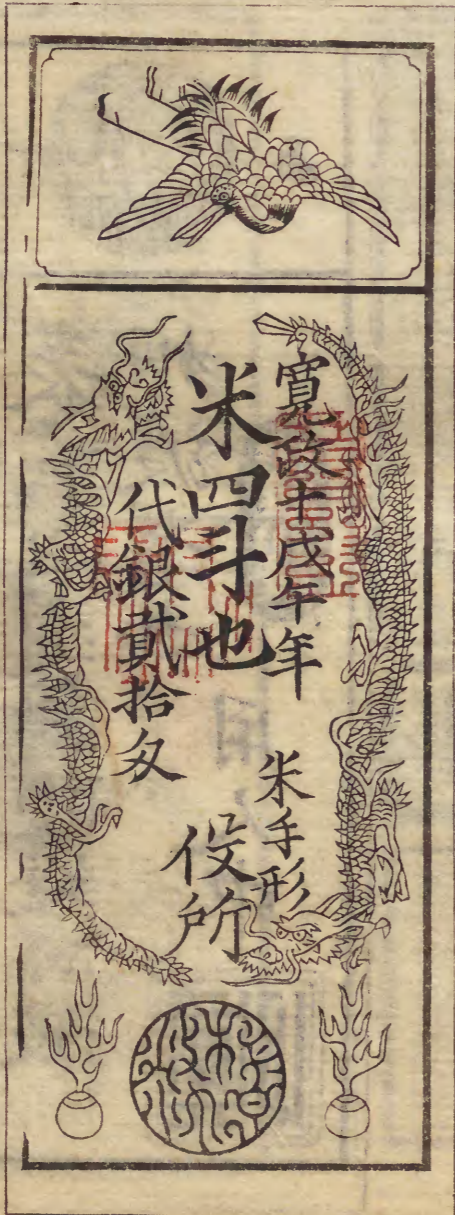 寛政十戊午年
米四斗也
代銀貳拾匁
米手形
役所